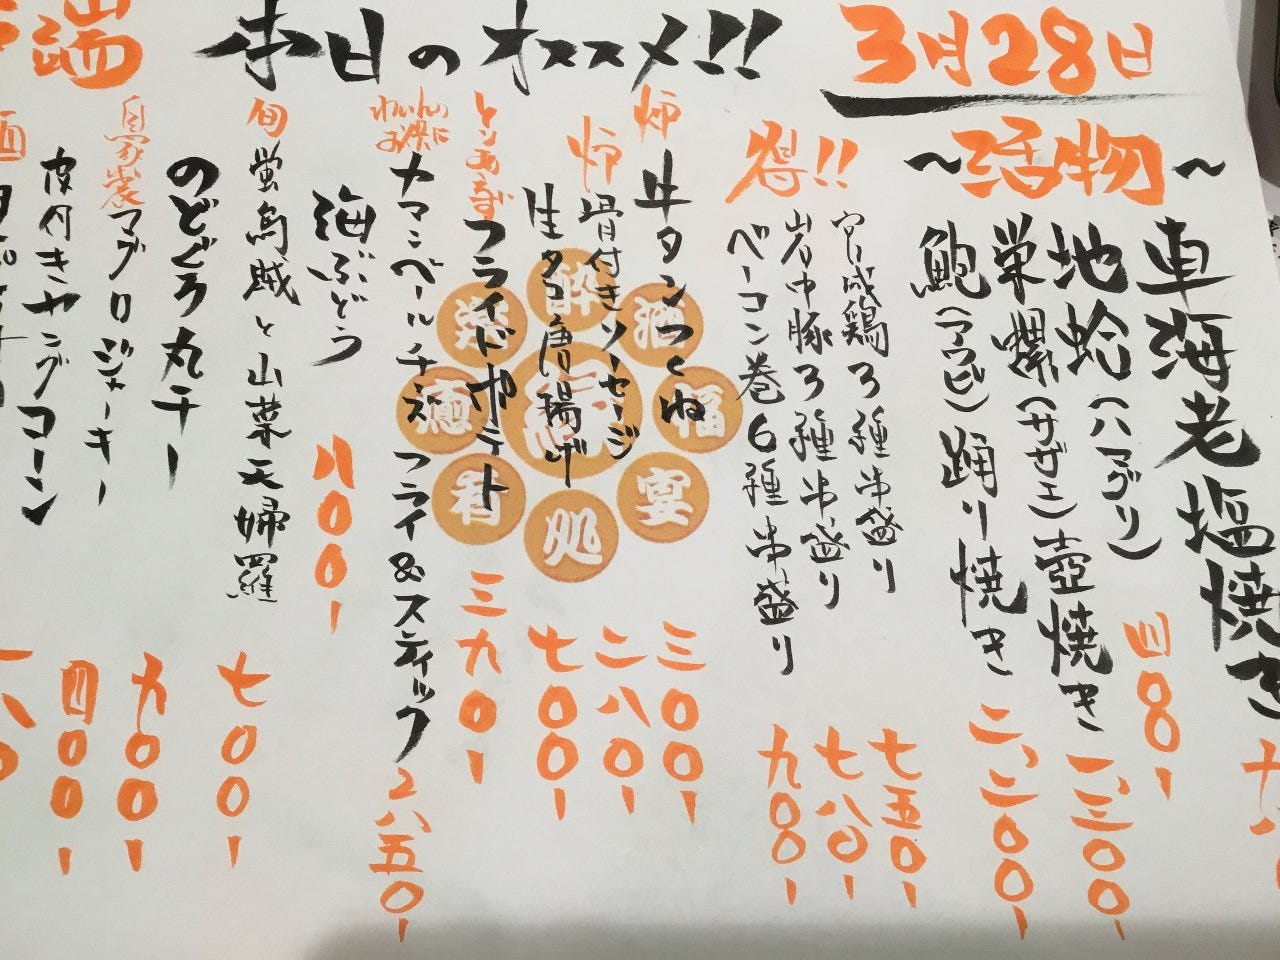 本日のオススメ!!
3月28日
〜活物〜
車海老塩焼き
地蛤(ハマグリ)
四八〇-
栄螺(サザエ)壺焼き 一、三〇〇-
鮑(アワビ)踊り焼き 二、二〇〇-
得!!
宮城鶏3種串盛り 七五〇-
岩中豚3種串盛り 七八〇-
ベーコン巻6種串盛り 九〇〇-
炉 牛タンつくね 三〇〇-
炉 骨付きソーセージ 二八〇-
生タコ唐揚げ 七〇〇-
とりあえず フライドポテト 三九〇-
わいんのお供に カマンベールチーズフライ&スティック
海ぶどう 八〇〇-
旬 蛍烏賊と山菜天婦羅 七〇〇-
のどぐろ丸干し
自家製 マグロジャーキー 九〇〇-
皮付きヤングコーン 四〇〇-
端
酔
酒
福
宴
処
肴
癒
楽